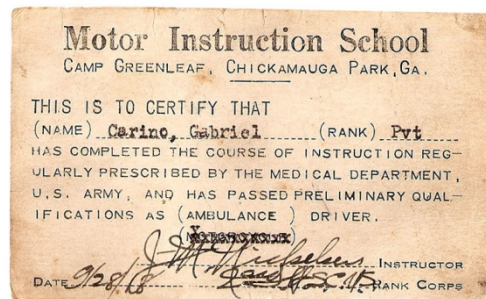 Motor Instruction School
CAMP GREENLEAF, CHICKAMAUGA PARK, GA.
THIS IS TO CERTIFY THAT
(NAME) Carino, Gabriel (RANK) Pvt
HAS COMPLETED THE COURSE OF INSTRUCTION REG-
ULARLY PRESCRIBED BY THE MEDICAL DEPARTMENT,
U.S. ARMY, AND HAS PASSED PRELIMINARY QUAL-
IFICATIONS AS (AMBULANCE ) DRIVER.
INSTRUCTOR
DATE 9/28/18 RANK CORPS